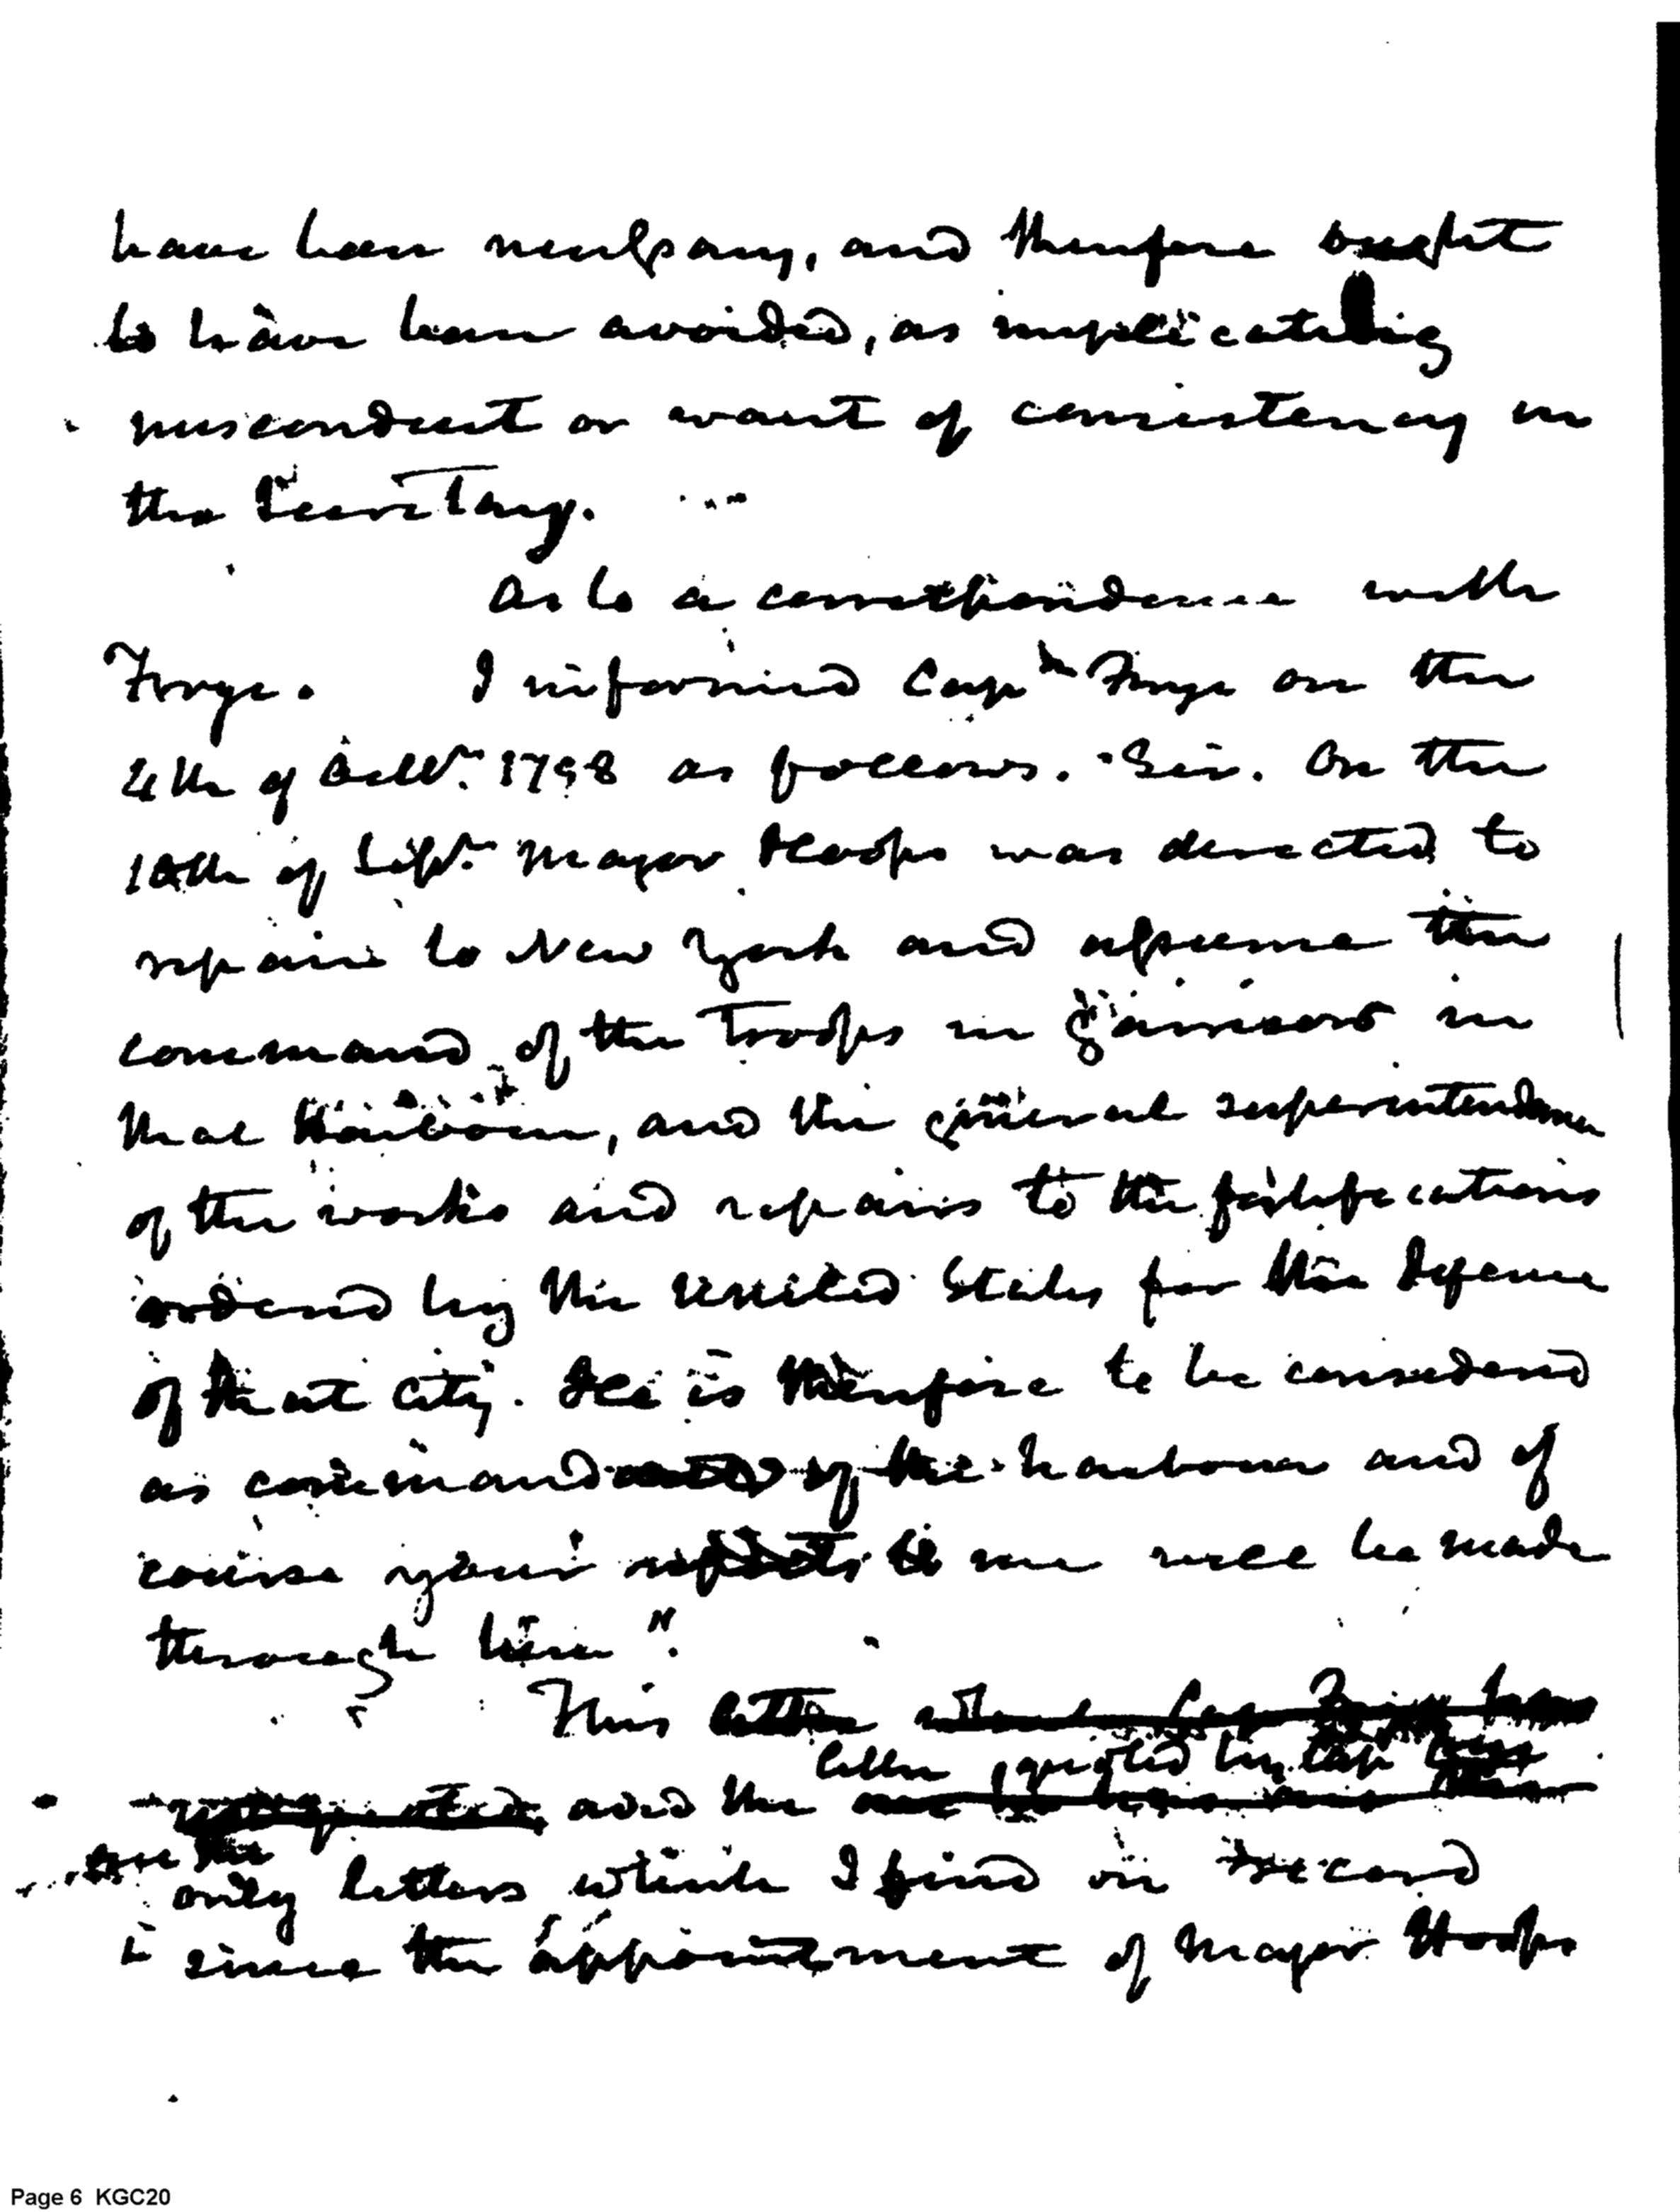 have been necessary, and therefore ought
to have been avoided, as implicating
misconduct or want of consistency in
the Secretary.
As to a correspondence with
Frye. I informed Capn Frye on the
4th of Octbr. 1798 as follows. "Sir. On the
10th of Sepr. Major Hoops was directed to
repair to New York and assume the
command of the Troops in Garrison in
that Harbour, and the general superintendence
of the works and repairs to the fortifications
ordered by the United States for the defence
of that city. He is therefore to be considered
as command of the harbour and of
course your reports to me will be made
through him".
This letter which Cap Frye has
letter quoted by Cap Frye
not quoted and the
are the
only letters which I find on record
since the appointment of Major Hoops
Page 6 KGC20